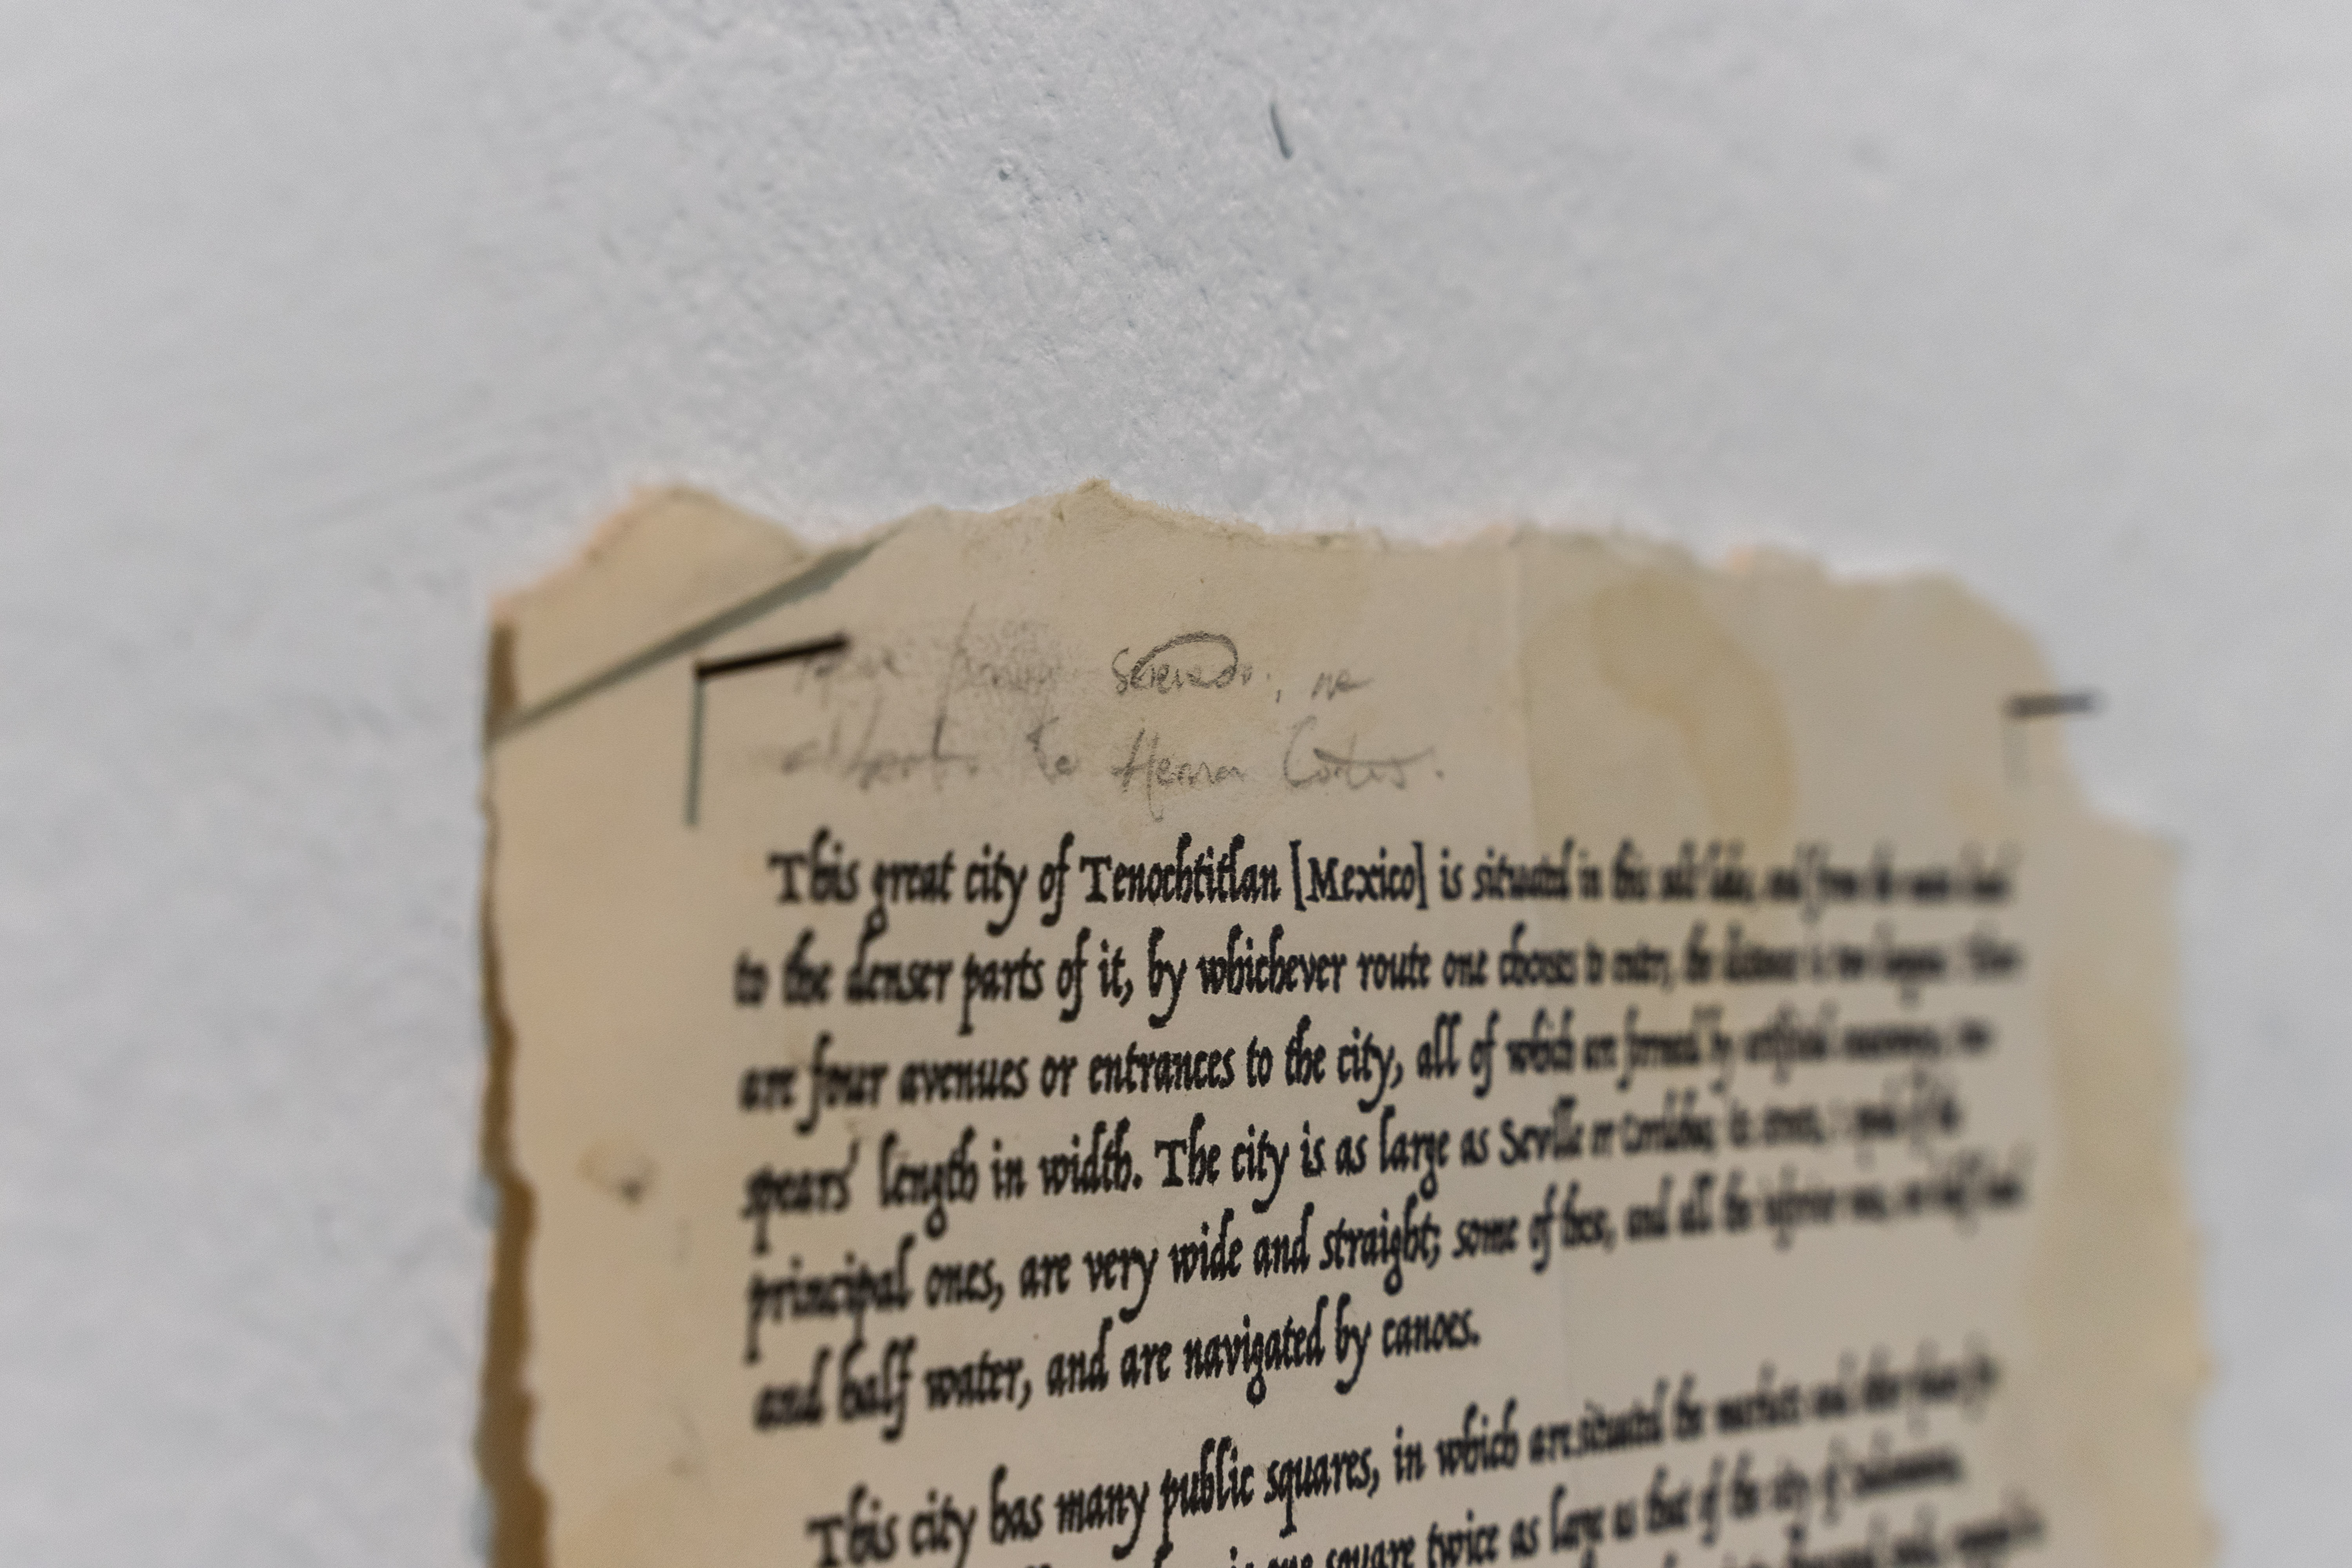 Hernan Cortes.
This great city of Tenochtitlan [Mexico] is situated in this salt lake, and from the
to the denser parts of it, by whichever route one chooses to enter, the distance is two leagues.
are four avenues or entrances to the city, all of which are formed by artificial
spears' length in width. The city is as large as Seville or Cordoba; its streets, I speak of the
principal ones, are very wide and straight; some of these, and all the inferior ones, are half land
and half water, and are navigated by canoes.
This city has many public squares, in which are situated the markets and other places for
one square twice as large as that of the city of